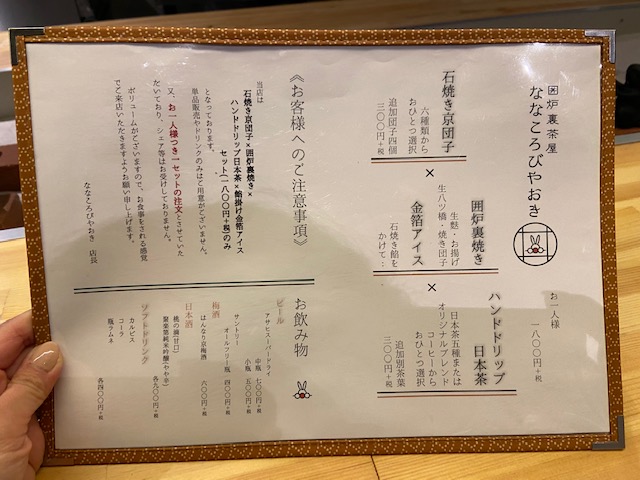 囲炉裏茶屋
ななころびやおき
お一人様
一八〇〇円+税
石焼き京団子
六種類から
おひとつ選択
追加団子四個
三〇〇円+税
×
囲炉裏焼き
生麩・お揚げ
生八ツ橋・焼き団子
金箔アイス
石焼き餡を
かけて…
×
ハンドドリップ
日本茶
日本茶五種または
オリジナルブレンド
コーヒーから
おひとつ選択
追加別茶葉
三〇〇円+税
《お客様へのご注意事項》
当店は
石焼き京団子×囲炉裏焼き×
ハンドドリップ日本茶×餡掛け金箔アイス
セット(一八〇〇円+税)のみ
となっております。
単品販売やドリンクのみはご用意がございません。
又、お一人様つき一セットの注文とさせていた
だいており、シェア等はお受けしておりません。
ボリュームがございますので、お食事をされる感覚
でご来店いただきますようお願い申し上げます。
ななころびやおき 店長
お飲み物
ビール
アサヒスーパードライ
中瓶 七〇〇円+税
小瓶 五〇〇円+税
サントリー
オールフリー瓶 四〇〇円+税
梅酒
はんなり京梅酒
六〇〇円+税
日本酒
桃の滴(甘口)
聚楽第純米吟醸(やや辛)
各九〇〇円+税
ソフトドリンク
カルピス
コーラ
瓶ラムネ
各四〇〇円+税